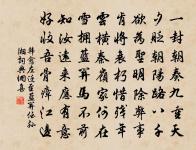 一封朝奏九重天
夕貶朝陽路八千
欲為聖明除弊事
肯將衰朽惜殘年
雲橫秦嶺家何在
雪擁藍關馬不前
知汝遠來應有意
好收吾骨瘴江邊
韓愈左遷至藍關示侄孫
湘詞典網